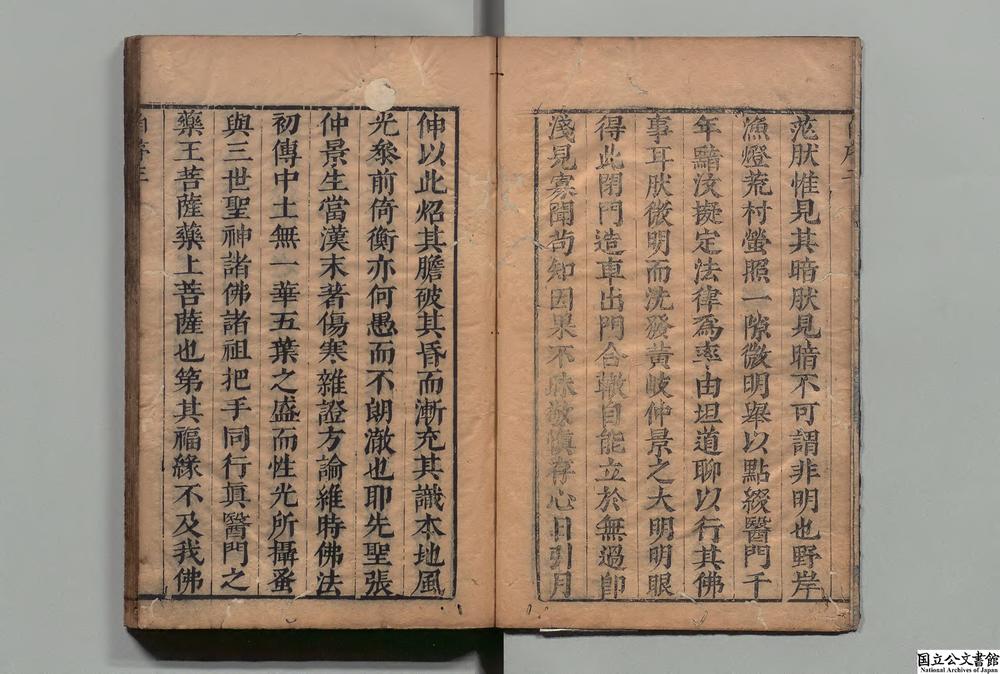 范肰惟見其暗肰見暗不可謂非明也野岸
漁燈荒村螢照一隙微明舉以點綴醫門千
年黯汶擬定法律爲率由坦道聊以行其佛
事耳肰微明而洗發黃岐仲景之大明明眼
得此閉門造車出門合轍自能立於無過卽
淺見寡聞苟知因果不昧敬愼存心日引月
伸以此炤其膽破其昏而漸充其識本地風
光叅前倚衡亦何愚而不朗澈也耶先聖張
仲景生當漢末著傷寒雜證方論維時佛法
初傳中土無一華五葉之盛而性光所攝蚤
與三世聖神諸佛諸祖把手同行眞醫門之
藥王菩薩藥上菩薩也第其福緣不及我佛
自序三
国立公文書館
National Archives of Japan